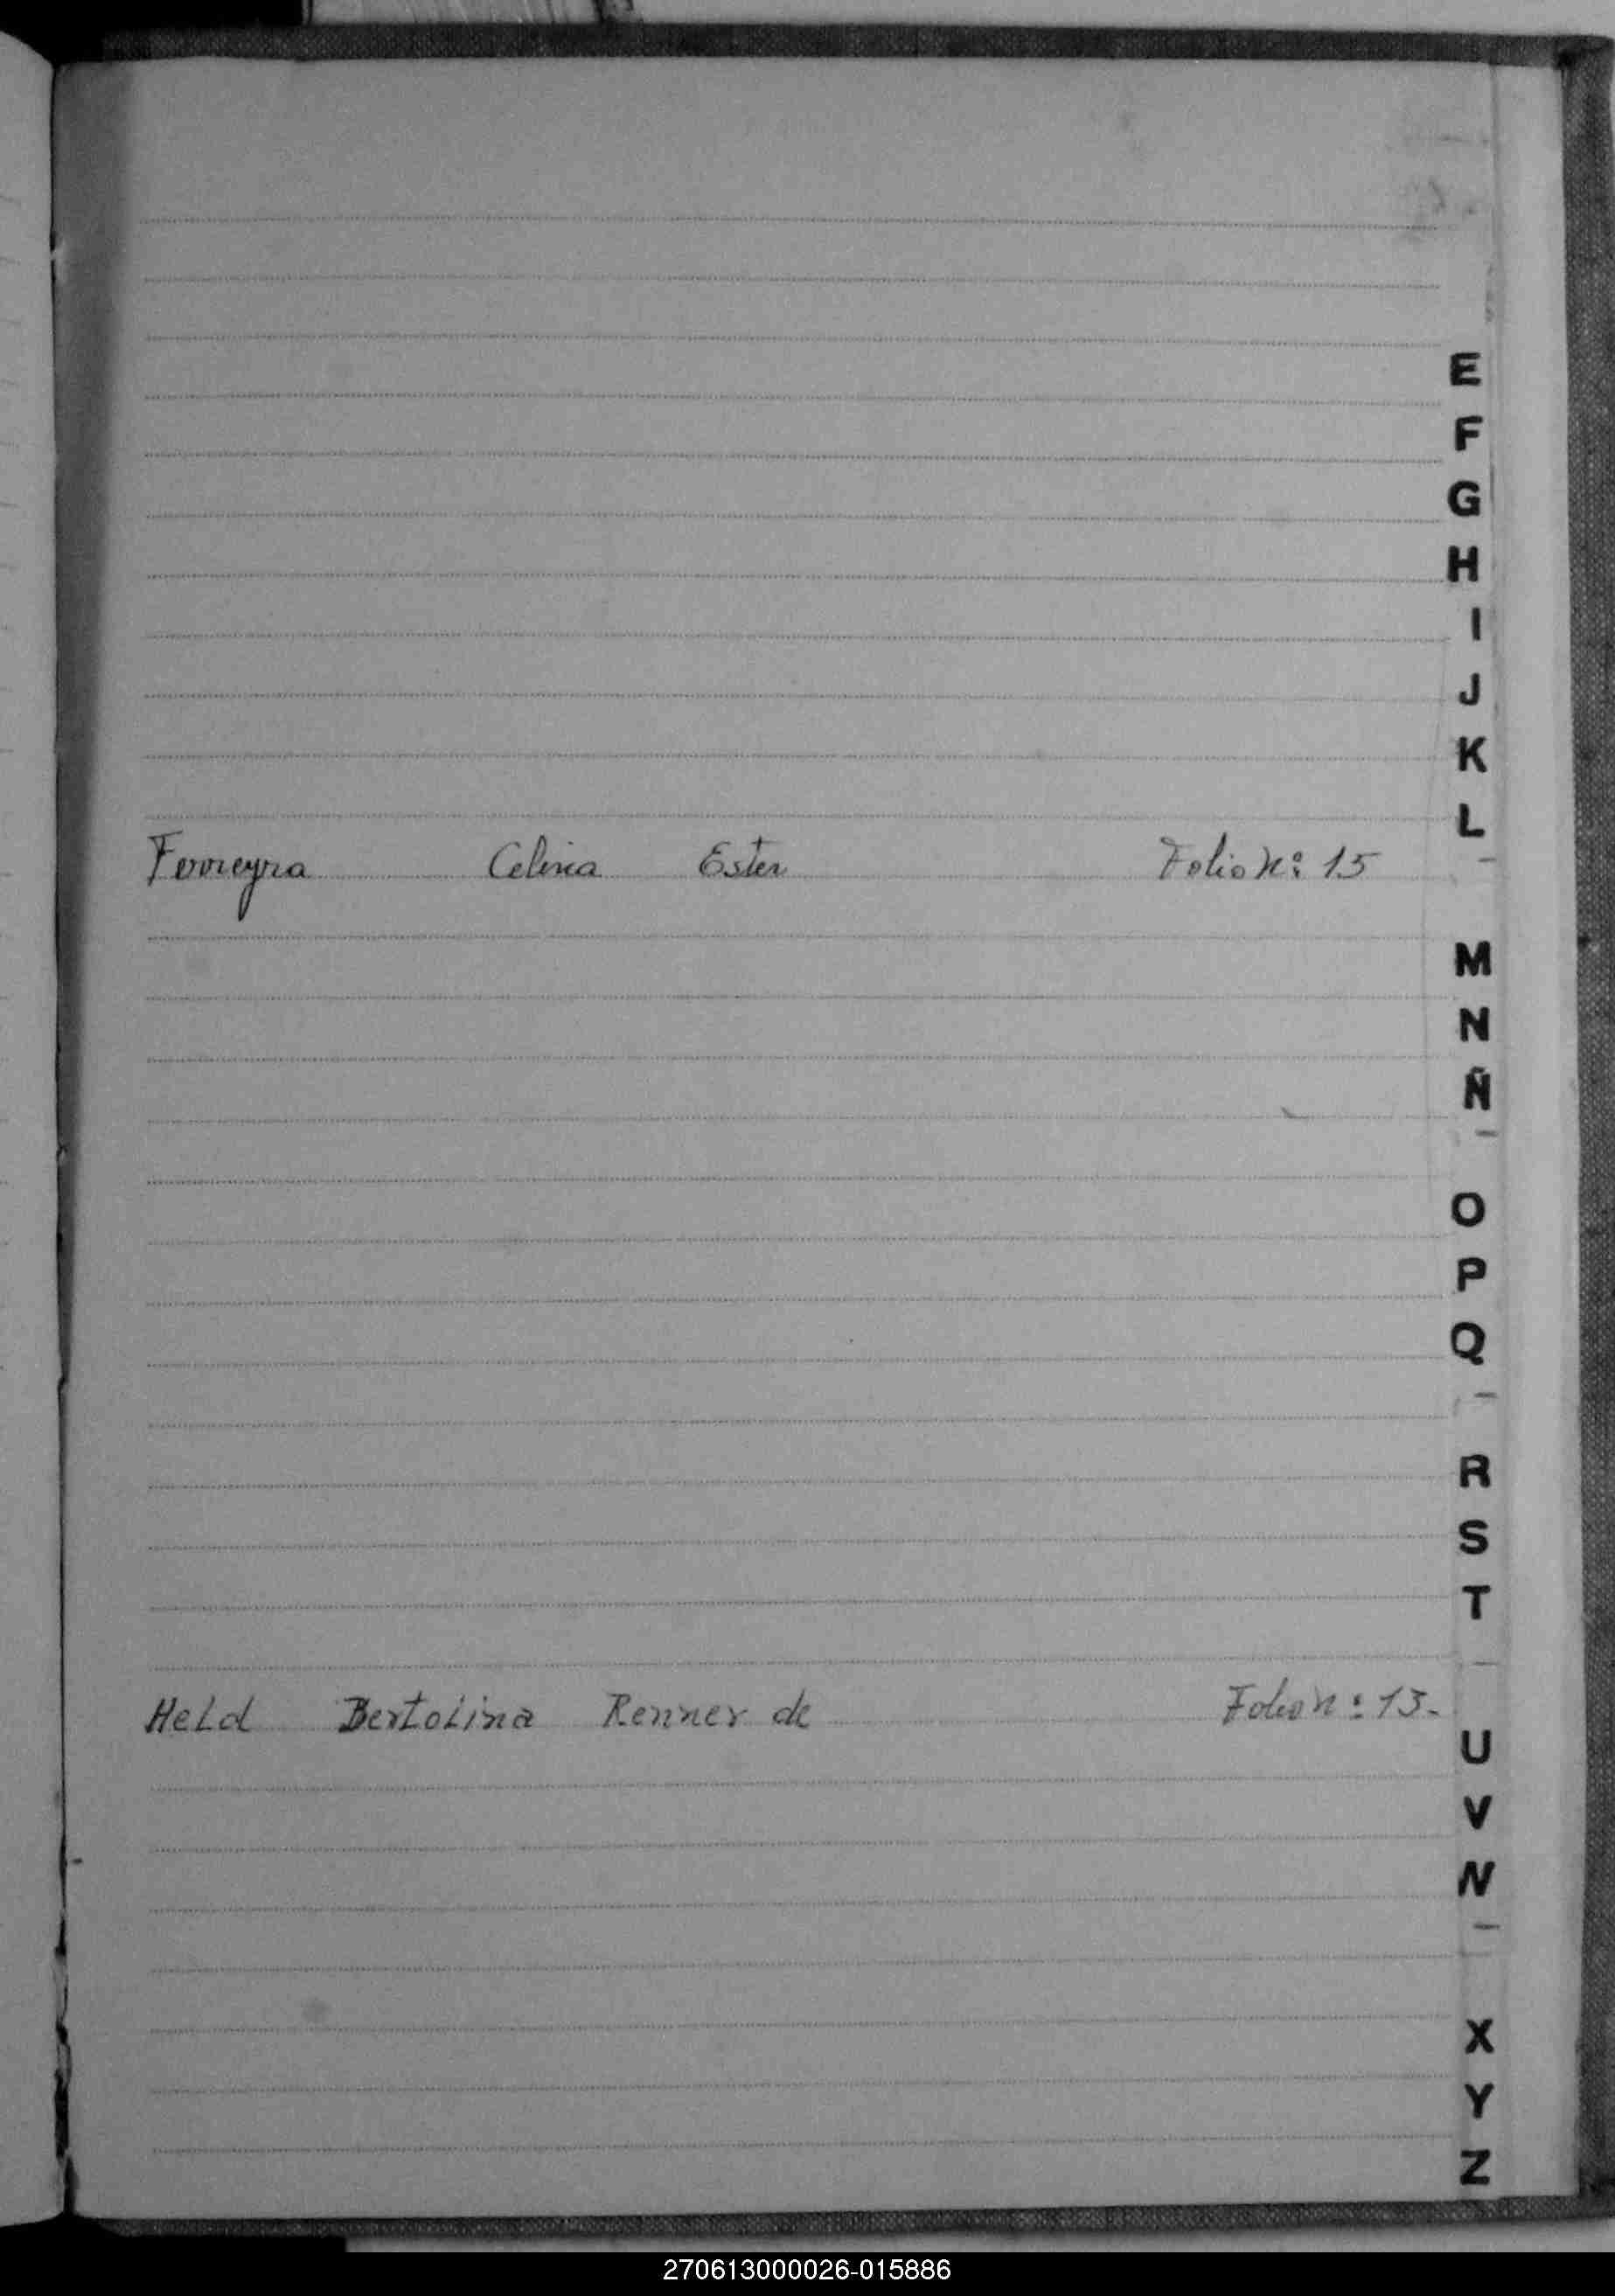 E
F
G
H
I
J
K
L
Ferreyra Celina Ester Folio n: 15
M
N
Ñ
O
P
Q
R
S
T
Held Bertolina Renner de Folio n: 13.
U
V
W
X
Y
Z
270613000026-015886